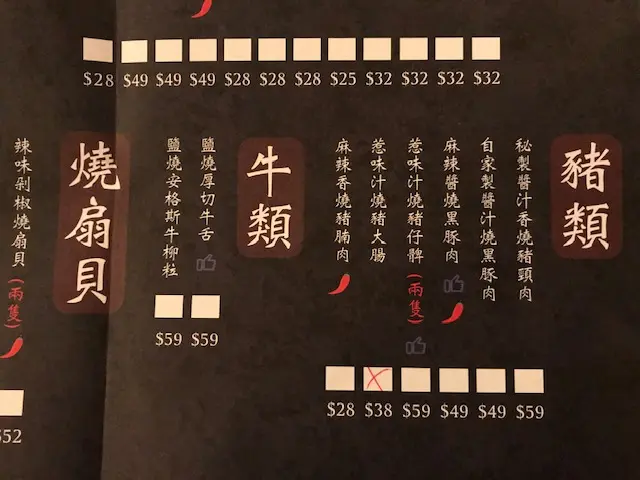 $28 $49 $49 $49 $28 $28 $28 $25 $32 $32 $32 $32
豬類
秘製醬汁香燒豬頸肉
自家製醬汁燒黑豚肉
麻辣醬燒黑豚肉
惹味汁燒豬仔髀(兩隻)
惹味汁燒豬大腸
麻辣香燒豬腩肉
$28 $38 $59 $49 $49 $59
牛類
鹽燒厚切牛舌
鹽燒安格斯牛柳粒
$59 $59
燒扇貝
辣味剁椒燒扇貝(兩隻)
$52